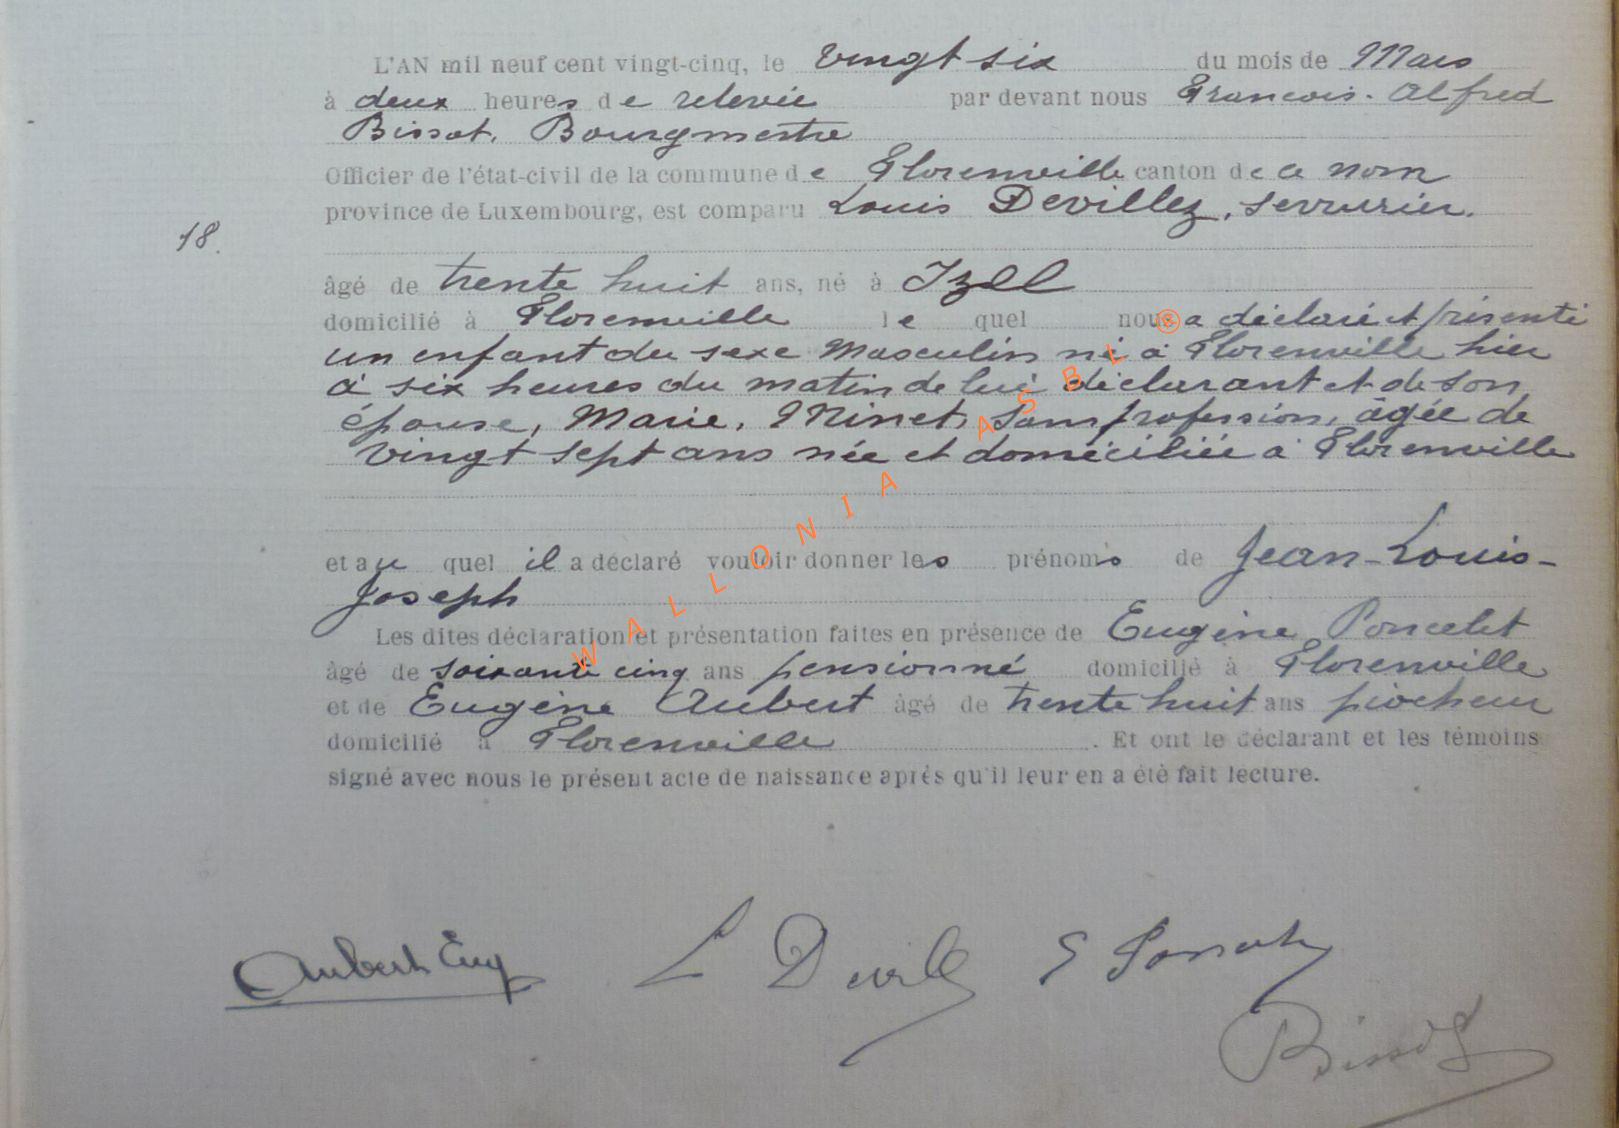 L'AN mil neuf cent vingt-cinq, le vingt six du mois de Mars
à deux heures de relevée par devant nous François-Alfred
Bissot, Bourgmestre
Officier de l'état-civil de la commune de Florenville canton de ce nom
province de Luxembourg, est comparu Louis Devillez, serrurier.
18.
âgé de trente huit ans, né à Izel
domicilié à Florenville le quel nous a déclaré et présenté
un enfant du sexe masculin né à Florenville hier
à six heures du matin de lui déclarant et de son
épouse, Marie, Minet, sans profession, âgée de
vingt sept ans née et domiciliée à Florenville
et au quel il a déclaré vouloir donner les prénoms de Jean-Louis-
Joseph
Les dites déclaration et présentation faites en présence de Eugène Poncelet
âgé de soixante cinq ans pensionné domicilié à Florenville
et de Eugène Aubert âgé de trente huit ans piocheur
domicilié à Florenville. Et ont le déclarant et les témoins
signé avec nous le présent acte de naissance après qu'il leur en a été fait lecture.
WALLONIA ASBL ®
Aubert Eug L Devill E
Bissot